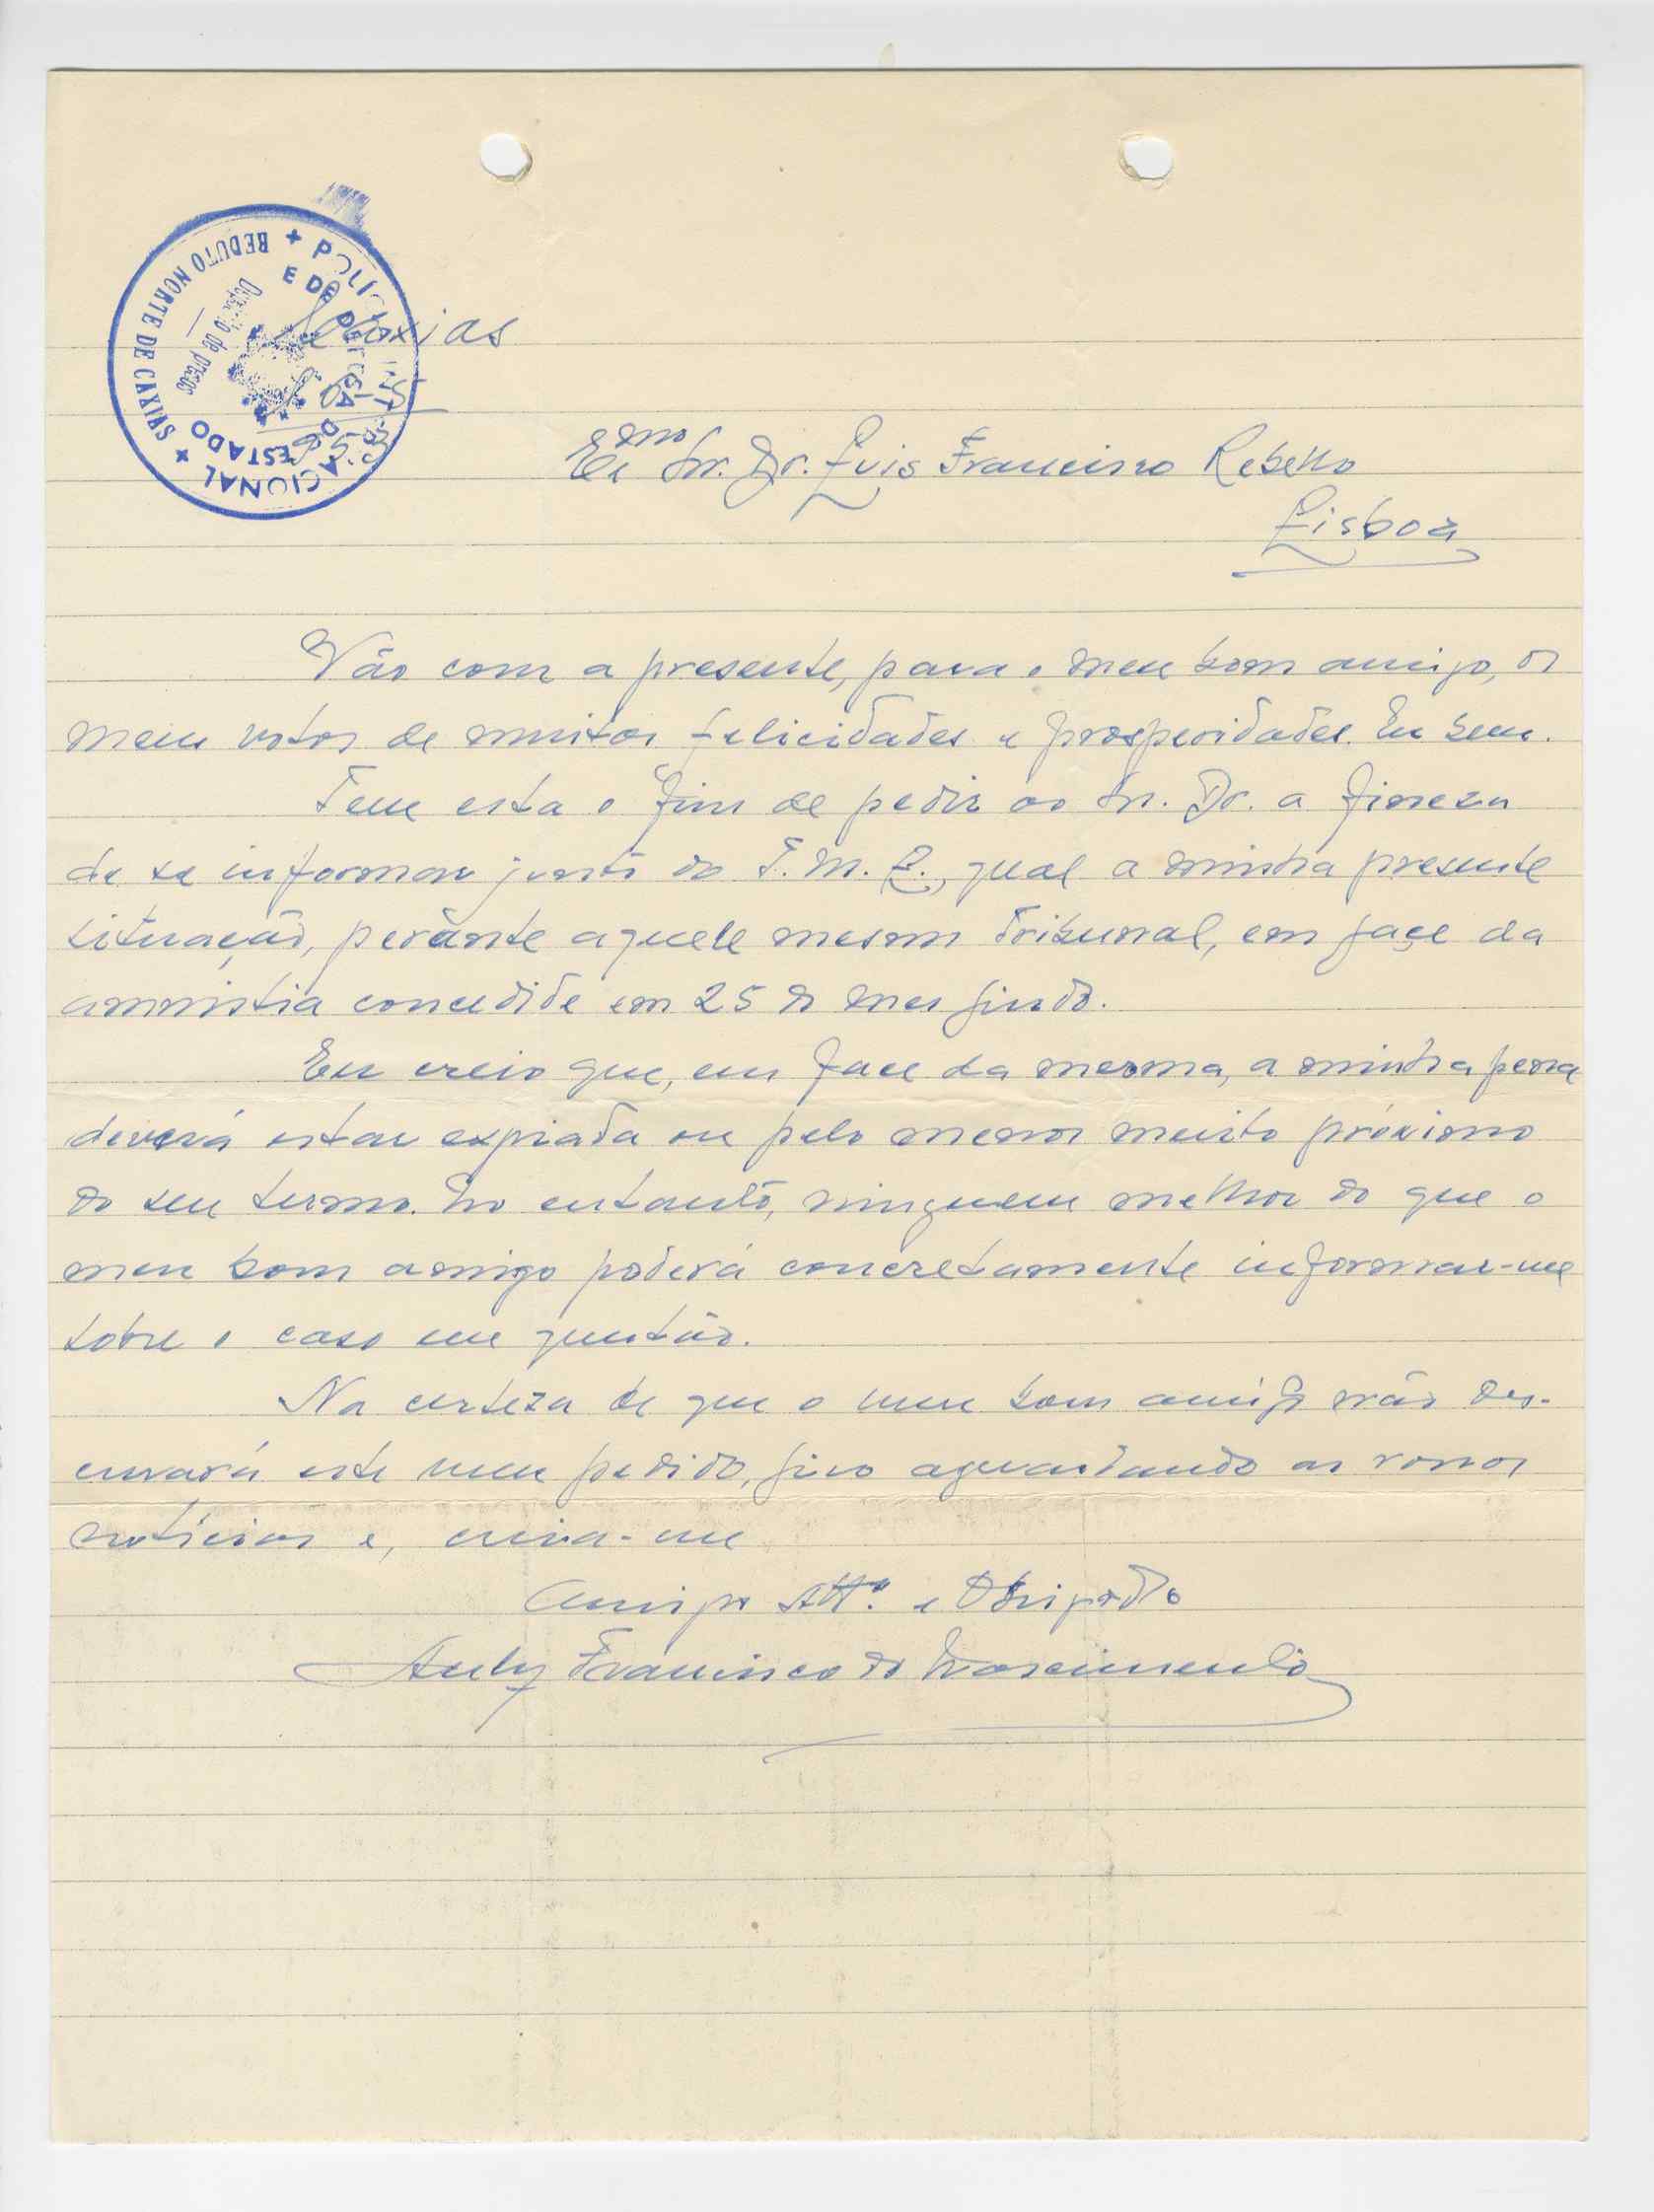 POLICIA INTERNACIONAL
E DE DEFESA DO ESTADO
REDUTO NORTE DE CAXIAS
Depósito de presos
Caxias
Exmo Sr. Dr. Luis Francisco Rebello
Lisboa
Vão com a presente, para o meu bom amigo, os
meus votos de muitas felicidades e prosperidades. Eu bem.
Tem esta o fim de pedir ao Sr. Dr. a fineza
de se informar junto do T. M. L., qual a minha presente
situação, perânte aquele mesmo Tribunal, em façe da
amnistia concedida em 25 do mes findo.
Eu creio que, em face da mesma, a minha pena
deverá estar expiada ou pelo menos muito próximo
do seu termo. No entanto, ninguem melhor do que o
meu bom amigo poderá concretamente informar-me
sobre o caso em questão.
Na certeza de que o meu bom amigo não des-
curará este meu pedido, fico aguardando as vossas
notícias e, creia-me
Amigo Attº. e Obrigado
Francisco do Nascimento